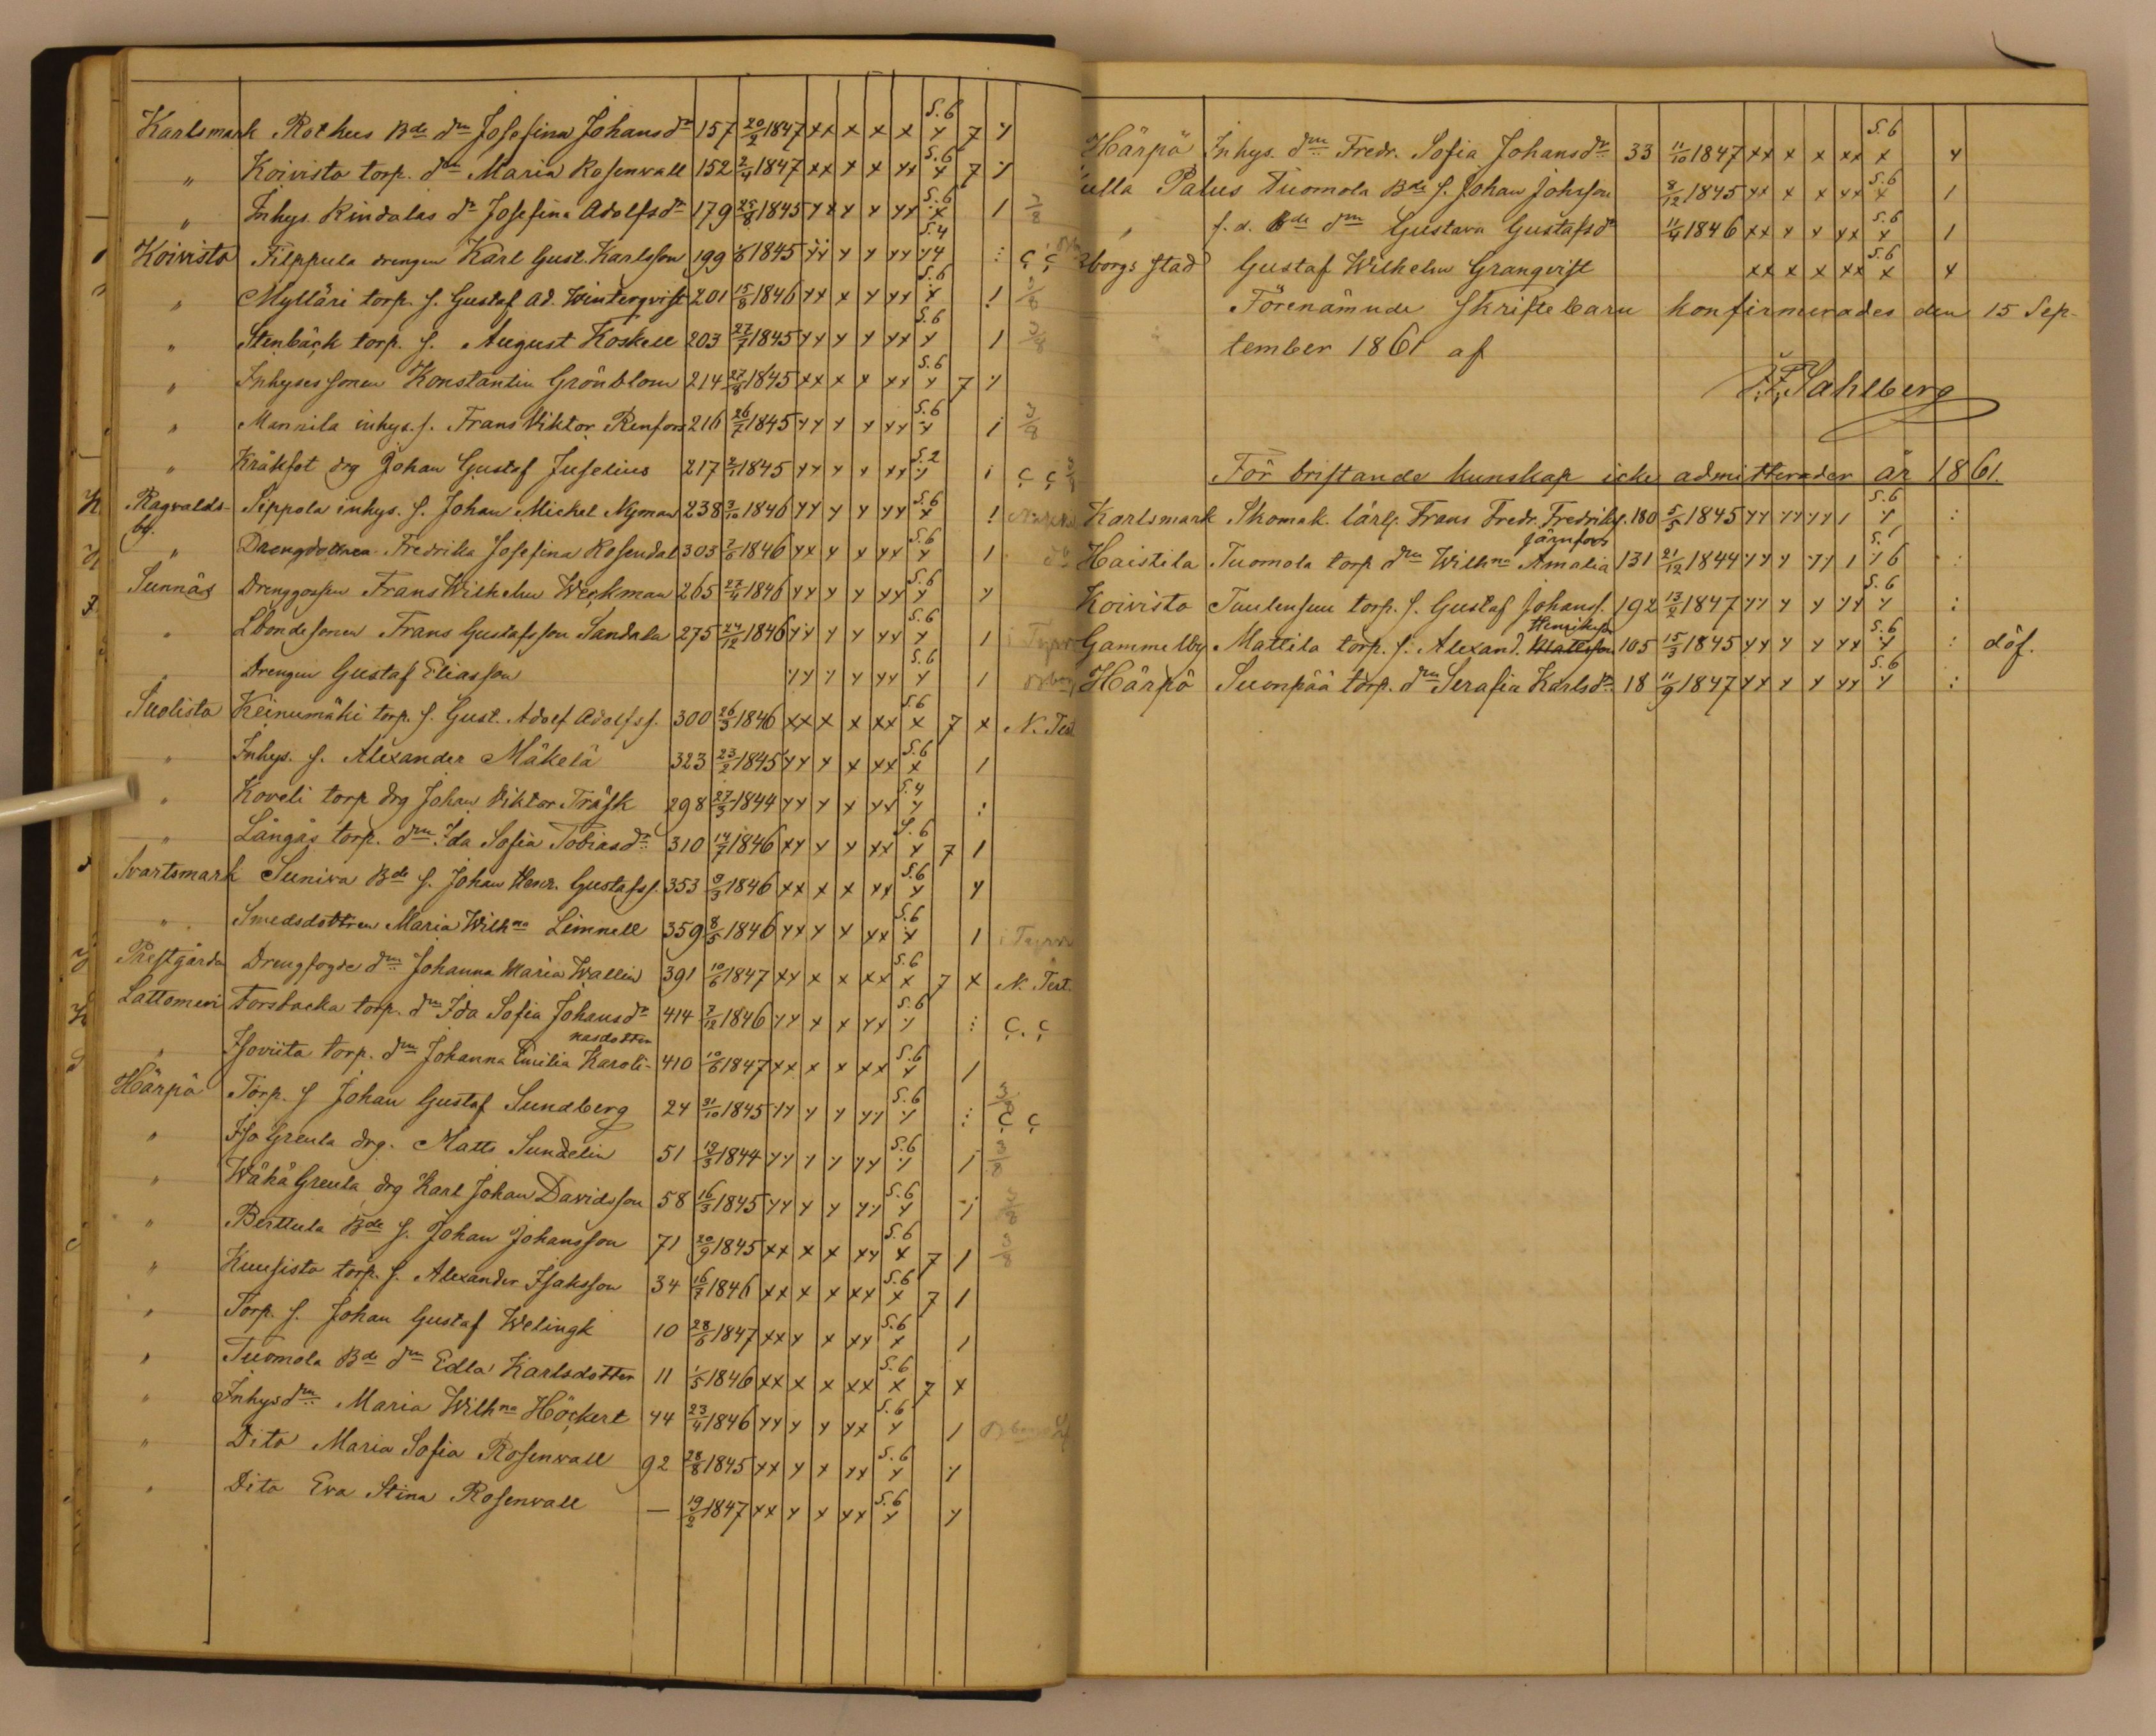 Karlsmark Rothus Bde dm Josefina Johansdr 157 20/2 1847 xx x x x S.6 x 7 x
" Koivisto torp. dm Maria Rosenwall 152 2/4 1847 xx x x xx S.6 x 7 x
" Inhys. Rindalas dr Josefina Adolfsdr 179 25/8 1845 xx x x xx S.6 x 1 3/8
Koivisto Filppula drengen Karl Gust. Karlsson 199 1845 xx x x xx S.4 x4 : ç ç
" Mylläri torp. s. Gustaf Ad. Winterqvist 201 15/8 1846 xx x x xx S.6 x 1 3/8
" Stenbäck torp. s. August Koskell 203 27/7 1845 xx x x xx S.6 x 1 3/8
" Inhyses sonen Konstantin Grönblom 214 27/8 1845 xx x x xx S.6 x 7 x
" Mannila inhys. s. Frans Viktor Renfors 216 26/7 1845 xx x x xx S.6 x 1 3/8
" Kråkfot drg Johan Gustaf Juselius 217 1845 xx x x xx S.2 x 1 ç ç
Ragvalds- Sippola inhys. s. Johan Michel Nyman 238 3/10 1846 xx x x xx S.6 x 1
by.
" Drengdottren Fredrika Josefina Rosendal 303 1846 xx x x xx S.6 x 1 do
Sunnäs Drenggossen Frans Wilhelm Weckman 265 27/4 1846 xx x x xx S.6 x x
" Lbondesonen Frans Gustafsson Sandala 275 24/12 1846 xx x x xx S.6 x 1
" Drengen Gustaf Eliasson xx x x xx S.6 x 1
Suolisto Keinumäki torp. s. Gust. Adolf Adolfss. 300 26/3 1846 xx x x xx S.6 x 7 x N. Test
" Inhys. s. Alexander Mäkelä 323 23/2 1845 xx x x xx S.6 x 1
" Koveli torp drg Johan Viktor Träsk 298 27/3 1844 xx x x xx S.4 x :
" Långås torp. dm Ida Sofia Tobiasdr 310 14/7 1846 xx x x xx S.6 x 7 1
Svartsmark Suniva Bde s. Johan Henr. Gustafss. 353 9/3 1846 xx x x xx S.6 x x
" Smedsdottren Maria Wilhna Limnell 359 8/5 1846 xx x x xx S.6 x 1
Prestgården Drengfogde dm Johanna Maria Wallin 391 10/6 1847 xx x x xx S.6 x 7 x N. Test.
Lattomeri Torsbacka torp. dm Ida Sofia Johansdr 414 7/12 1846 xx x x xx S.6 x : ç. ç
nasdotter
" Isoviita torp. dm Johanna Emilia Karoli- 410 10/6 1847 xx x x xx S.6 x 1
Härpö Torp. s Johan Gustaf Sundberg 24 31/10 1845 xx x x xx S.6 x : 3/8 ç ç
" Iso Greula drg. Matts Sundelin 51 19/3 1844 xx x x xx S.6 x 1 3/8
" Wähä Greula drg Karl Johan Davidsson 58 16/3 1845 xx x x xx S.6 x 1 3/8
" Berttula Bde s. Johan Johansson 71 20/9 1845 xx x x xx S.6 x 7 1 3/8
" Kuusisto torp. s. Alexander Isaksson 34 16/7 1846 xx x x xx S.6 x 7 1
" Torp. s. Johan Gustaf Welingk 10 28/6 1847 xx x x xx S.6 x 1
" Tuomola Bde dm Edla Karlsdotter 11 1/5 1846 xx x x xx S.6 x 7 x
" Inhysdm Maria Wilhna Höckert 44 23/4 1846 xx x x xx S.6 x 1
" Dito Maria Sofia Rosenvall 92 28/8 1845 xx x x xx S.6 x x
" Dito Eva Stina Rosenvall — 19/2 1847 xx x x xx S.6 x x
Härpö Inhys. dm Fredr. Sofia Johansdr 33 11/10 1847 xx x x xx S.6 x x
ulla Palus Tuomola Bde s. Johan Johsson 8/12 1845 xx x x xx S.6 x 1
" f. d. Bde dm Gustava Gustafsdr 11/4 1846 xx x x xx S.6 x 1
borgs stad Gustaf Wilhelm Granqvist xx x x xx S.6 x x
Förenämnde skriftebarn konfirmerades den 15 Sep-
tember 1861 af
F. F. Sahlberg
För bristande kunskap icke admitterader år 1861.
Karlsmark Skomak. lärl. Frans Fredr. Fredrikss. 180 5/5 1845 xx xx xx 1 S.6 x :
Järnfors
Haistila Tuomola torp dm Wilhna Amalia 131 21/12 1844 xx x xx 1 x 6 :
Koivisto Tuulensuu torp. s. Gustaf Johanss. 192 13/2 1847 xx x x xx S.6 x :
Henriksson
Gammelby Mattila torp. s. Alexand. Mattsson 105 15/3 1845 xx x x xx S.6 x : döf.
Härpö Suonpää torp. dm Serafia Karlsdr 18 11/9 1847 xx x x xx S.6 x :